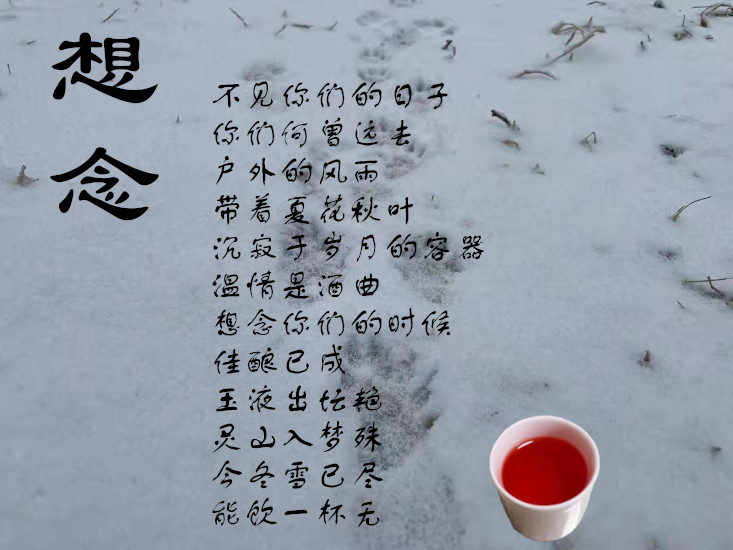 想念
不见你们的日子
你们何曾远去
户外的风雨
带着夏花秋叶
沉寂于岁月的容器
温情是酒曲
想念你们的时候
佳酿已成
玉液出坛艳
灵山入梦殊
今冬雪已尽
能饮一杯无